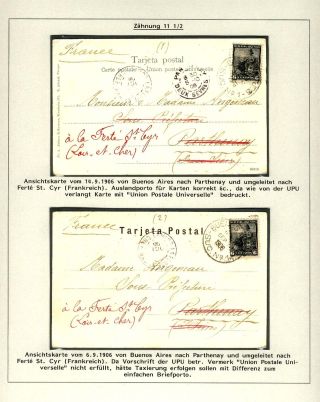 Zähnung 11 1/2
(1)
France
Tarjeta postal
Union postale universelle
Monsieur & Madame
Sous Préfecture
à la Ferté St Cyr
Parthenay
(Loir-et-Cher)
(Deux Sèvres)
Ansichtskarte vom 14.9.1906 von Buenos Aires nach Parthenay und umgeleitet nach
Ferté St. Cyr (Frankreich). Auslandporto für Karten korrekt 6c., da wie von der UPU
verlangt Karte mit "Union Postale Universelle" bedruckt.
(2)
France
Tarjeta Postal
Madame
Sous Préfecture
à la Ferté St Cyr
Parthenay
(Loir-et-Cher)
Ansichtskarte vom 6.9.1906 von Buenos Aires nach Parthenay und umgeleitet nach
Ferté St. Cyr (Frankreich). Da Vorschrift der UPU betr. Vermerk "Union Postale Uni-
verselle" nicht erfüllt, hätte Taxierung erfolgen sollen mit Differenz zum
einfachen Briefporto.